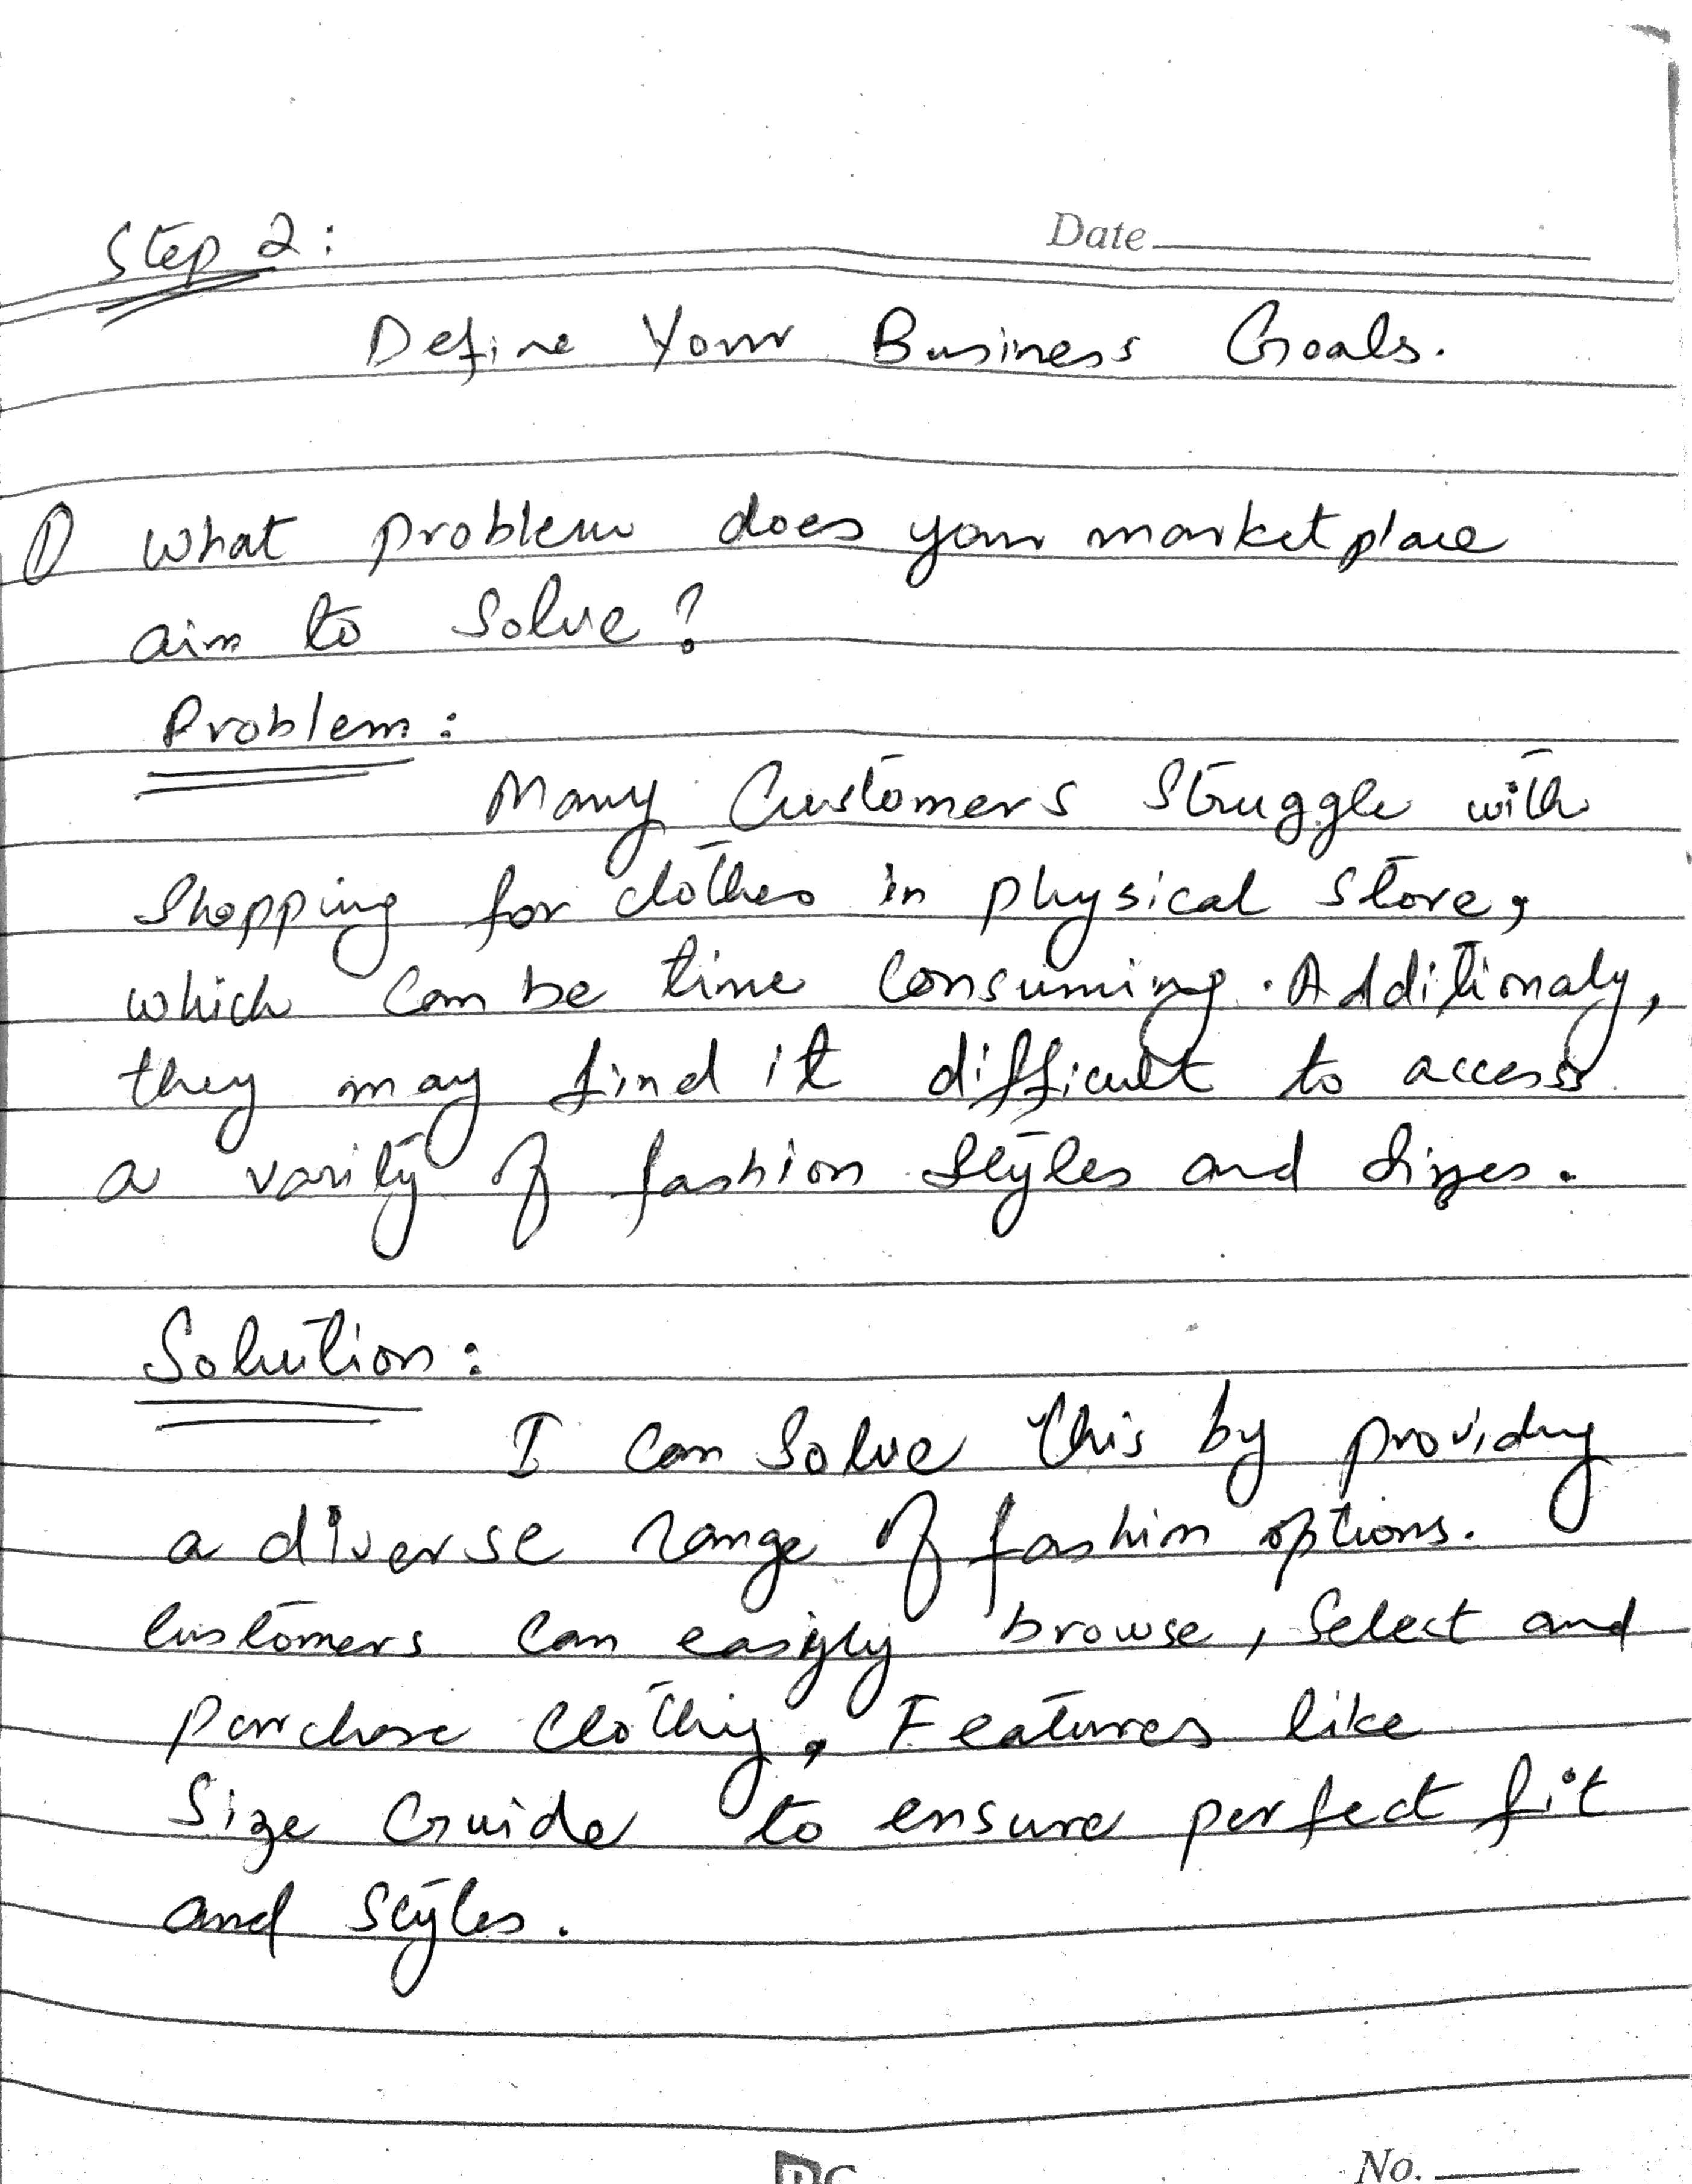 Step 2:
Date
Define Your Business Goals.
① What problem does your marketplace
aim to Solve?
Problem:
Many Customers Struggle with
Shopping for clothes in physical Store,
which can be time Consuming. Additionaly,
they may find it difficult to access
a varity of fashion Styles and Sizes.
Solution:
I can Solve this by providing
a diverse range of fashion options.
Customers can easigly browse, Select and
purchase Clothing. Features like
Size Guide to ensure perfect fit
and Styles.
No.